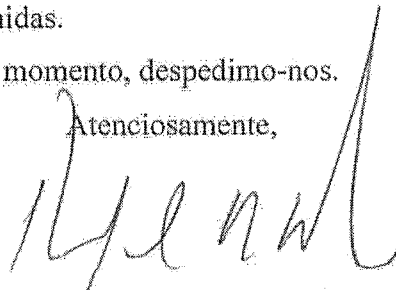 nidas.
momento, despedimo-nos.
Atenciosamente,